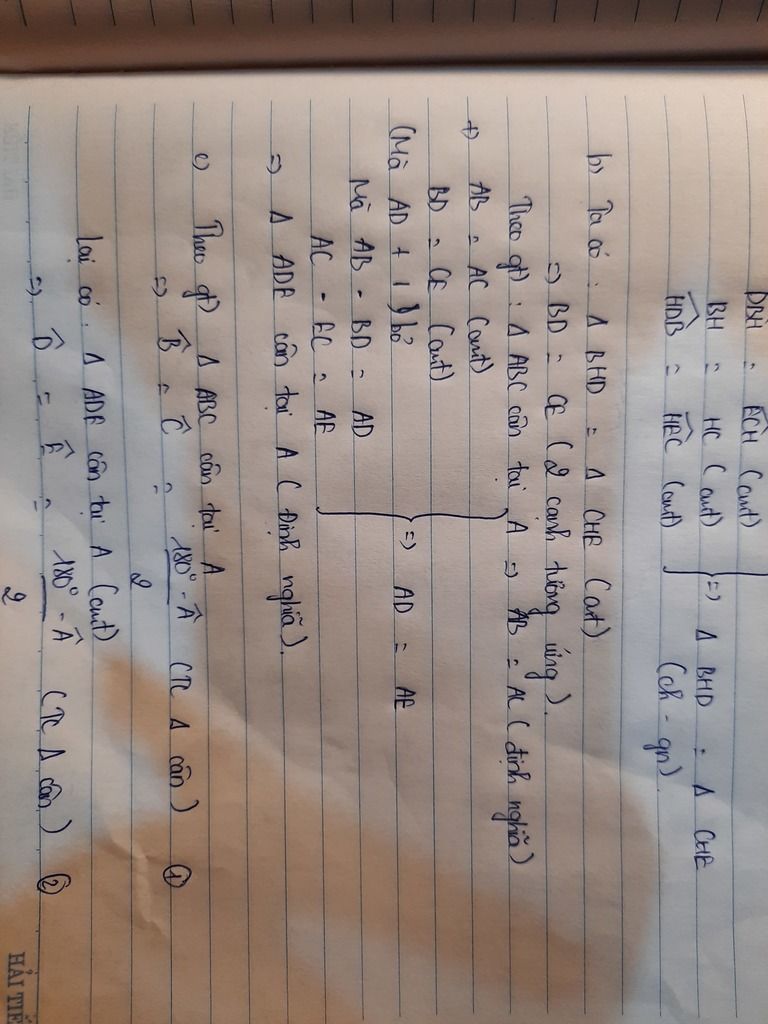 DBH = ECH (cmt)
BH = HC (cmt) => Δ BHD = Δ CHE
HDB = HEC (cmt) (ch - gn)
b) Ta có : Δ BHD = Δ CHE (cmt)
=> BD = CE (2 cạnh tương ứng).
Theo gt : Δ ABC cân tại A => AB = AC (định nghĩa)
+) AB = AC (cmt)
BD = CE (cmt)
(Mà AD + 1) bỏ => AD = AE
Mà AB - BD = AD
AC - EC = AE
=> Δ ADE cân tại A (định nghĩa).
c) Theo gt) Δ ABC cân tại A
=> B = C = 180° - A / 2 (TC Δ cân) ①
Lại có : Δ ADE cân tại A (cmt)
=> D = E = 180° - A / 2 (TC Δ cân) ②
HẢI TIẾ